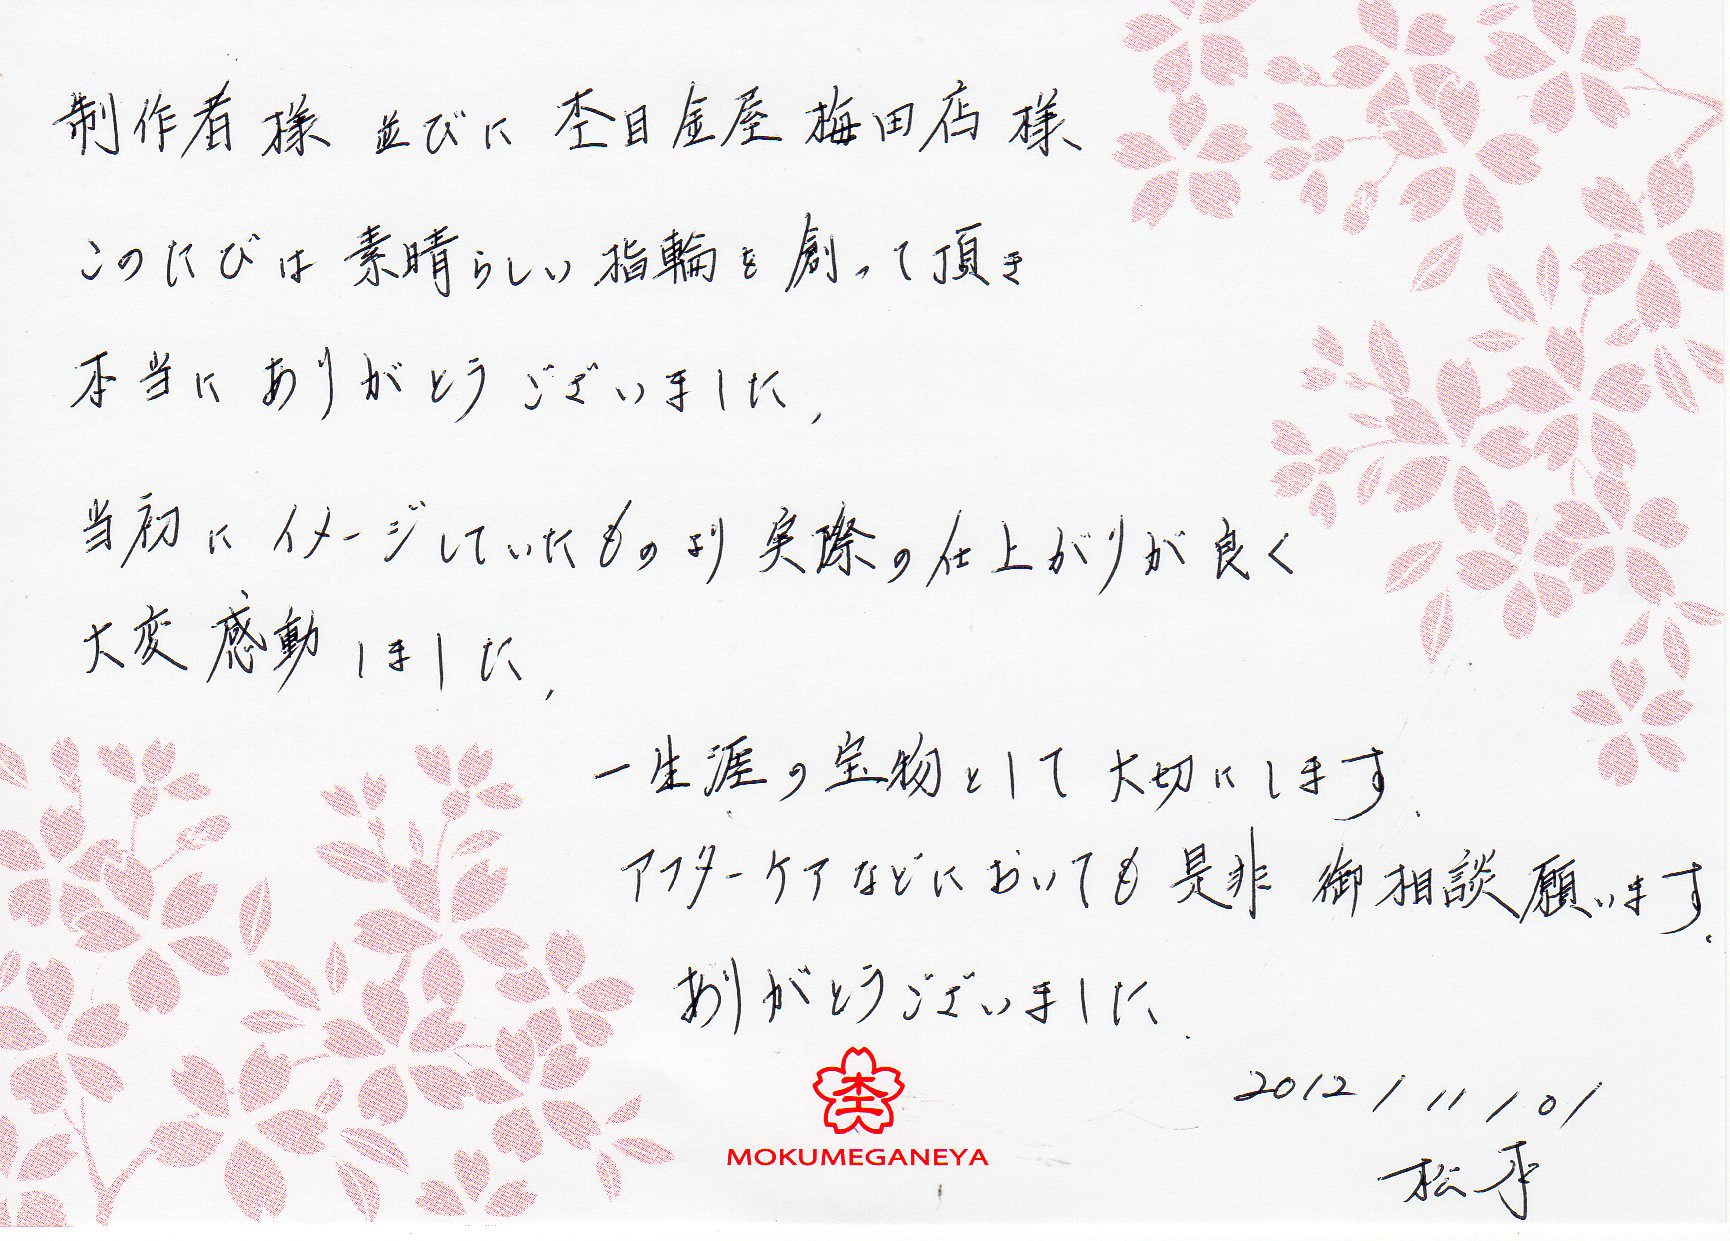 制作者様 並びに 杢目金屋 梅田店様
このたびは素晴らしい指輪を創って頂き
本当にありがとうございました。
当初にイメージしていたものより実際の仕上がりが良く
大変感動しました。
一生涯の宝物として大切にします。
アフターケアなどにおいても是非御相談願います。
ありがとうございました。
杢
MOKUMEGANEYA
2012/11/01
松本